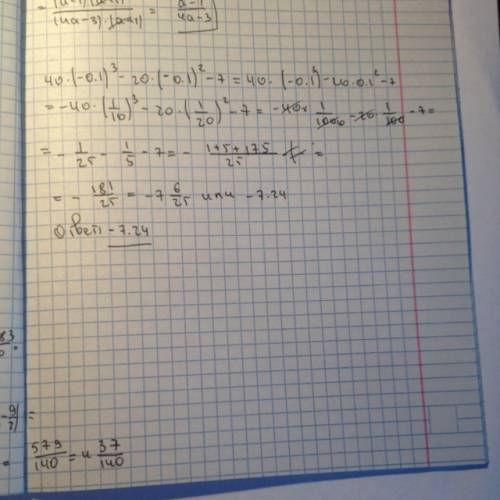 = (a-1)(a+1) / (4a-3)·(a+1) = a-1 / 4a-3
40·(-0.1)³-20·(-0.1)²-7=40·(-0.1³)-20·0.1²-7
=-40·(1/10)³-20·(1/20)²-7=-40·1/1000-20·1/100-7=
=-1/25-1/5-7=- 1+5+175/25 =
=-181/25=-7 6/25 или -7.24
Ответ: -7.24
83
-9/
=
= 579/140=4 37/140